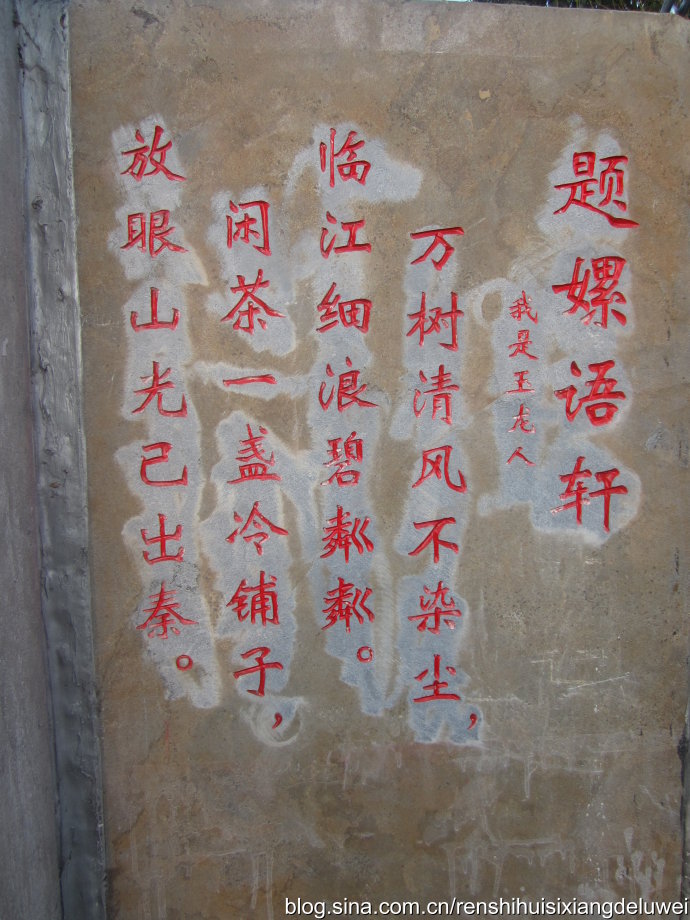 题嫘语轩
我是玉龙人
万树清风不染尘，
临江细浪碧粼粼。
闲茶一盏冷铺子，
放眼山光己出秦。
blog.sina.com.cn/renshihuisixiangdeluwei